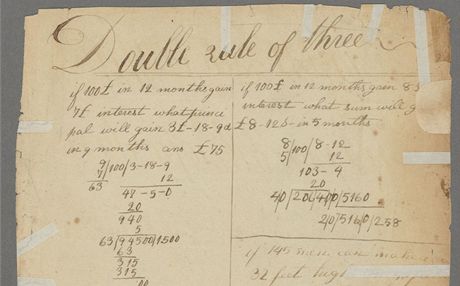 Double rule of three
if 100£ in 12 months gain
7£ interest what princi
pal will gain 3£-18-9d
in 9 months ans £75
9/100/3-18-9
7 12
63 47-5-0
20
940
5
63/94500/1500
63
315
315
00
if 100£ in 12 months gain 8£
interest what sum will g
£8-12s-in 5 months
8/100/8-12
5 12
103-4
20
40/20 /5160
20/5160/258
if 145 men can
32 feet high